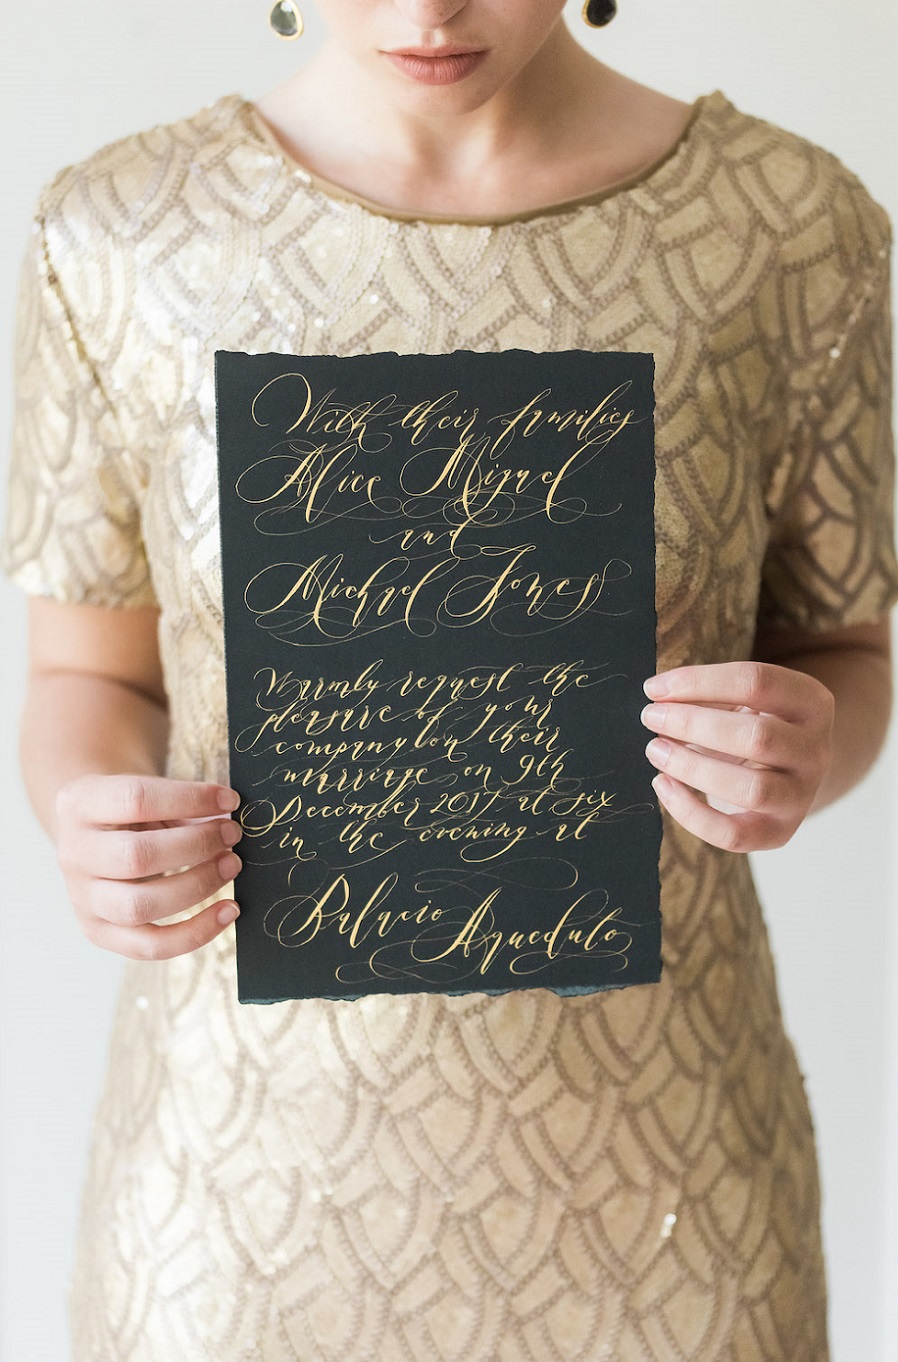 With their families
Alice Miguel
and
Michael Jones
Warmly request the
pleasure of your
company on their
marriage on 9th
December 2017 at six
in the evening at
Palacio Aqueduto